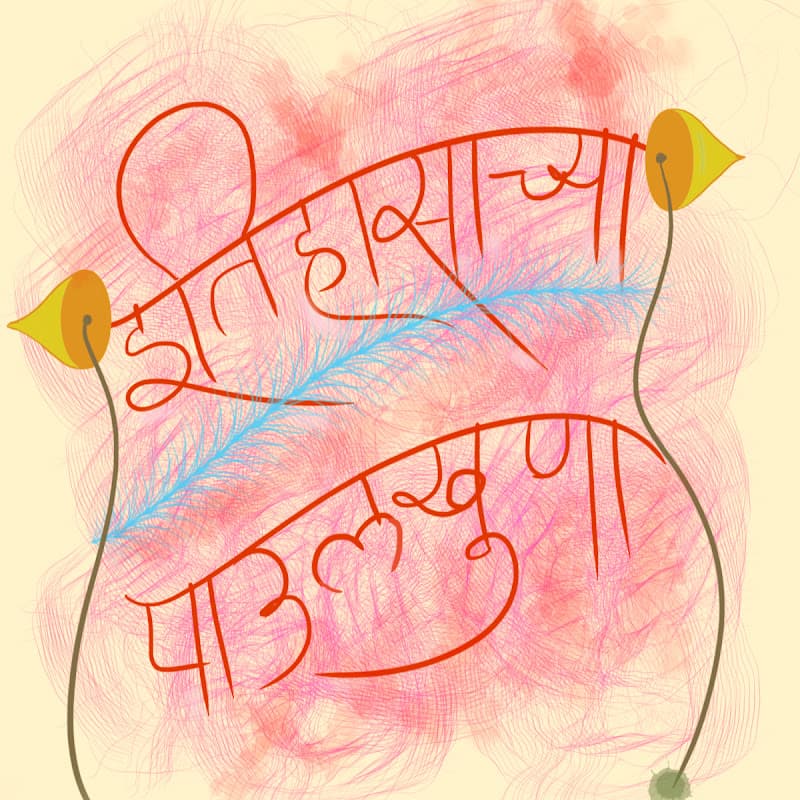 इतिहासाच्या
पाउलखुणा